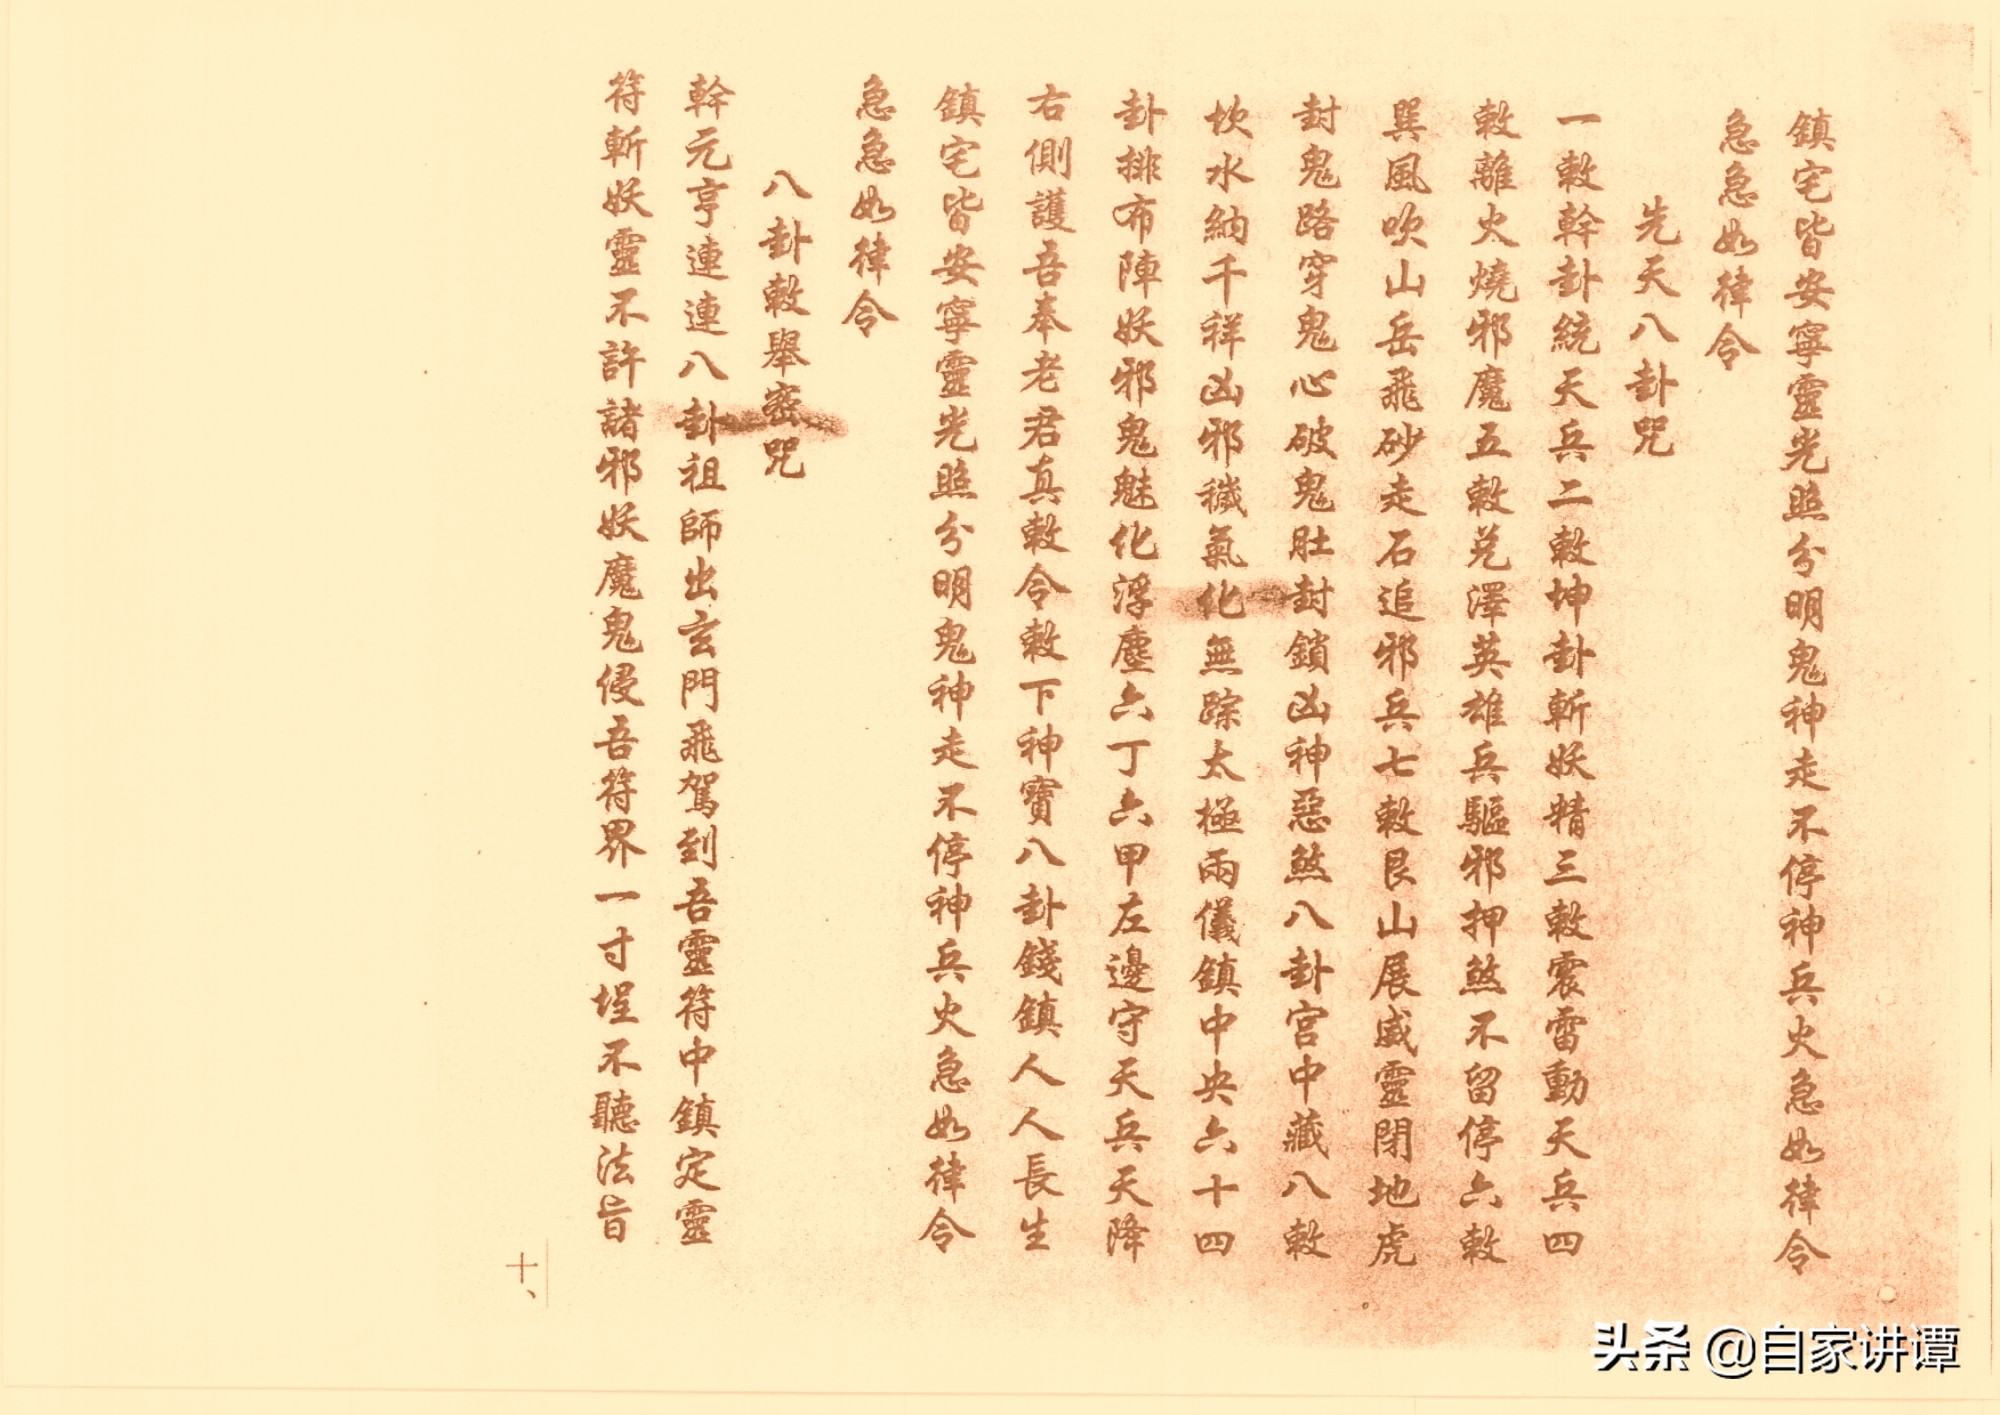 鎮宅皆安寧靈光照分明鬼神走不停神兵火急如律令
急急如律令
先天八卦咒
一敕幹卦統天兵二敕坤卦斬妖精三敕震雷動天兵四
敕離火燒邪魔五敕兌澤英雄兵驅邪押煞不留停六敕
巽風吹山岳飛砂走石追邪兵七敕艮山展威靈閉地虎
封鬼路穿鬼心破鬼肚封鎖凶神惡煞八卦宮中藏八敕
坎水納千祥凶邪穢氣化無踪太極兩儀鎮中央六十四
卦排布陣妖邪鬼魅化浮塵六丁六甲左邊守天兵天降
右側護吾奉老君真敕令敕下神寶八卦錢鎮人人人長生
鎮宅皆安寧靈光照分明鬼神走不停神兵火急如律令
急急如律令
八卦敕舉密咒
幹元亨連連八卦祖師出玄門飛駕到吾靈符中鎮定靈
符斬妖靈不許諸邪妖魔鬼侵吾符界一寸埕不聽法旨
十、
头条 @自家讲谭